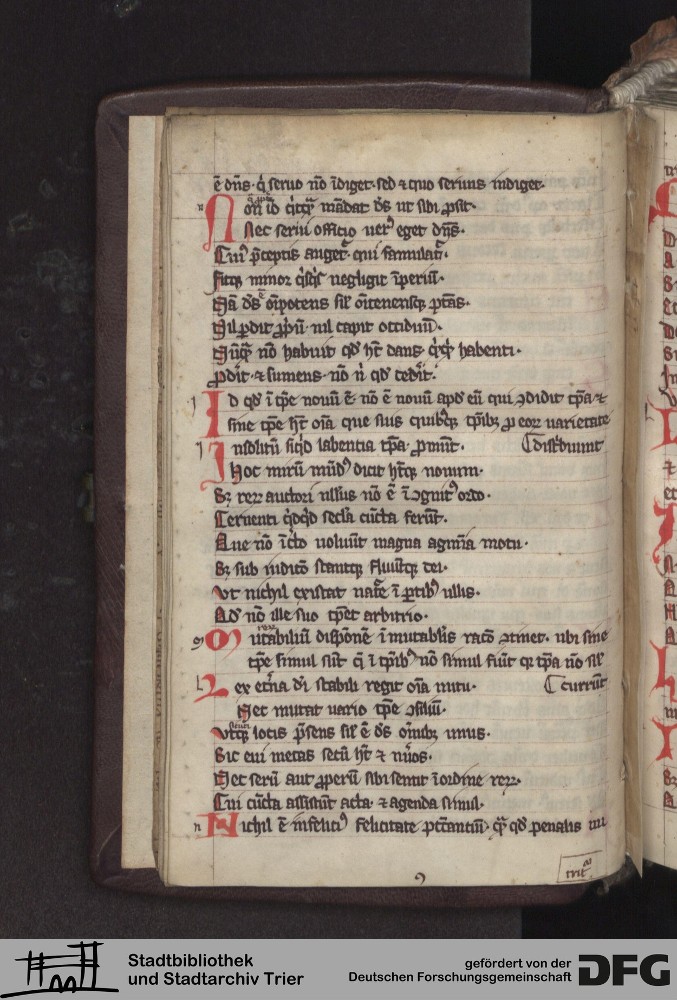 ē dn̄s. q̇ seruo nō īdiget. sed & quo seruus indiget.
Non id quicq̄ mādat ds̄ ut sibi ꝓsit.
Nec serui officio uerꝰ eget dn̄s.
Cuiꝰ p̄ceptis auget᷑ qui famulat᷑.
fitq; minor q̇sq̇s negligit īperiū.
Nā ds̄ oīpotens sil̄ oītenensq; ptās.
Nil ꝑdit ꝓpriū nil capit occiduū.
Nūq̄ nō habuit qd̄ ht̄ dans habenti.
& sumens nō qd̄ cedit.
Id qd̄ ī tp̄e nouū ē nō ē nouū apd̄ eū qui ꝯdidit tp̄a &
sine tp̄e ht̄ oīa que suis quibusq; tp̄ibꝫ ꝓ eoꝝ uarietate
Insolitū siqd̄ labencia tp̄a ꝓmūt. distribuunt
Hoc mirū mūdꝰ dicit ht̄q; nouum.
Sꝫ reꝝ auctori ullꝰ nō ē īcognitꝰ ordo.
Cernenti qd̄qd̄ secl̄a cūcta ferūt.
Que nō īcto uoluūt magna agmīa motu.
Sꝫ sub nutu stantq; fluūtq; dei.
Vt nichil existat nat̄e ī ꝑtibꝰ ullis.
Qd̄ nō ille suo tp̄et arbitrio.
Mutabiliū dispōnē īmutabilis racō ꝯtinet. ubi sine
tp̄e simul sūt q̄ ī tp̄ibꝰ nō simul fiūt qꝛ tp̄a nō sil̄
Lex et̄na dī stabili regit oīa nutu. currūt
Nec mutat uario tp̄e ꝯsiliū.
Vtq; locis p̄sens sil̄ ē ds̄ oībꝫ unus.
Sic eui metas secū ht̄ & nūos.
Nec serū aut ꝓperū sibi sentit ī ordine reꝝ.
Cui cūcta assistūt acta & agenda simul.
Nichil ē infeliciꝰ felicitate pccantiū. q̄ qd̄ penalis
Stadtbibliothek
und Stadtarchiv Trier
gefördert von der
Deutschen Forschungsgemeinschaft
DFG